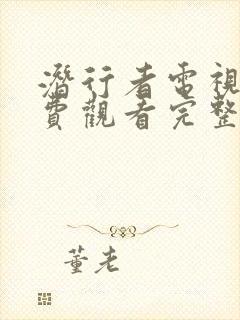 潛行者電視
費觀看完整
董老